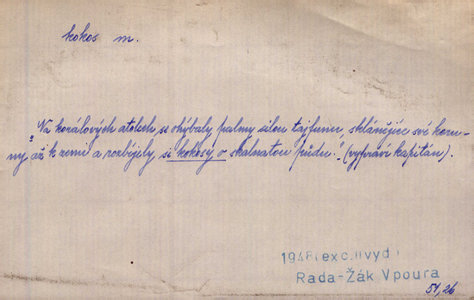 kokos m.
"Na korálových atolech se ohýbaly palmy silou tajfunu, sklánějíce své koru-
ny až k zemi a rozbíjely si kokosy o skalnatou půdu." (vypráví kapitán).
1948 (exc. II vyd)
Rada-Žák Vpoura
51, 26